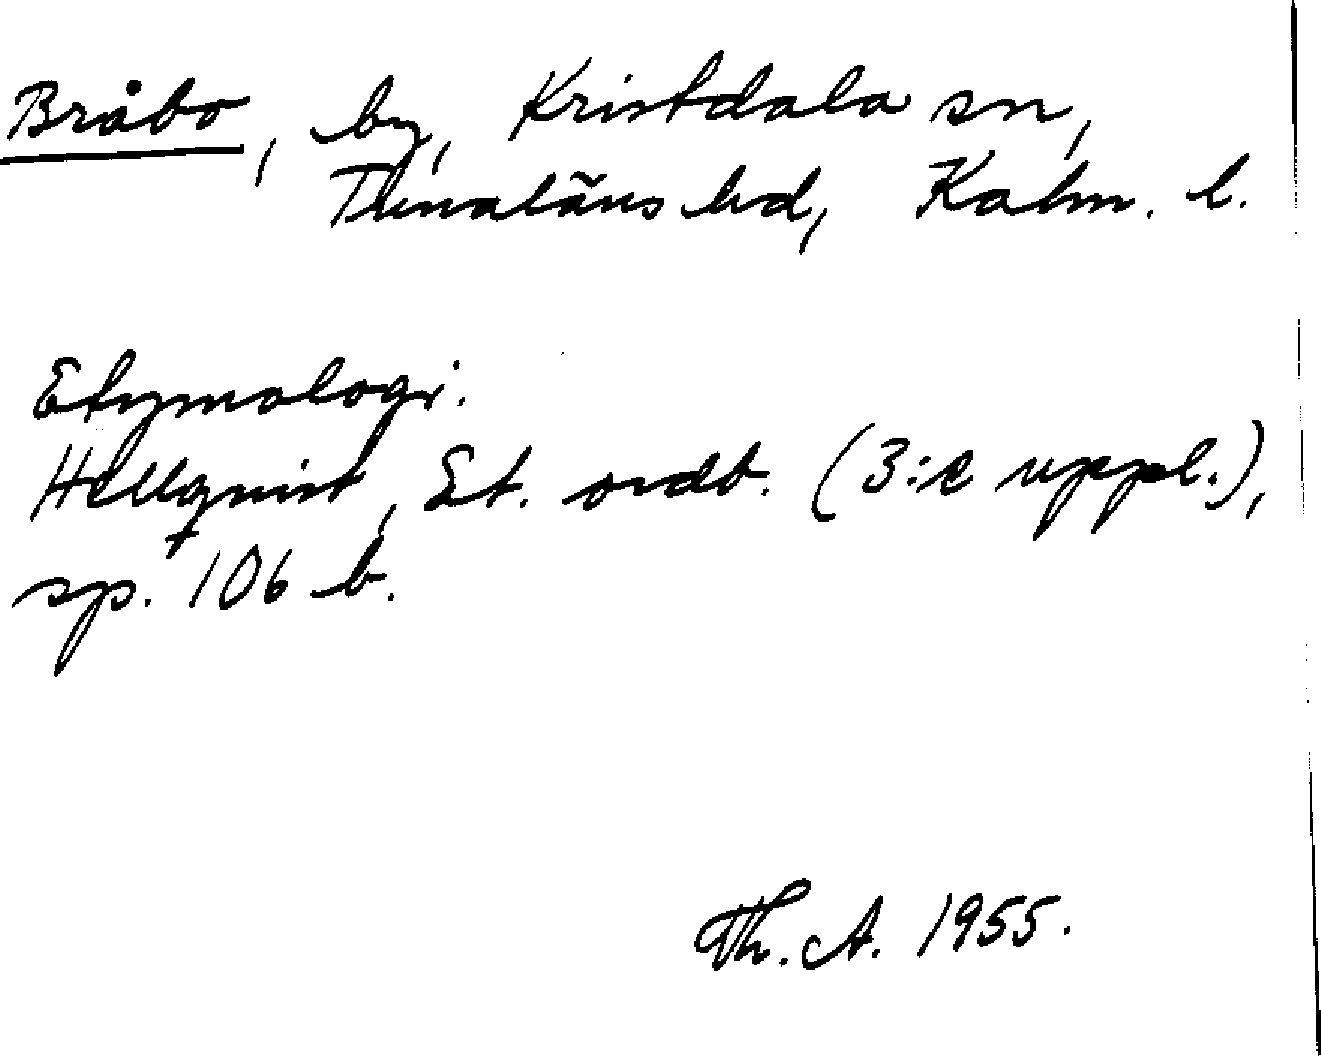 Bråbo, by, Kristdala sn,
Tunaläns hd, Kalm. l.
Etymologi.
Hellquist, Et. ordb. (3:e uppl.),
sp. 106 b.
Th. A. 1955.